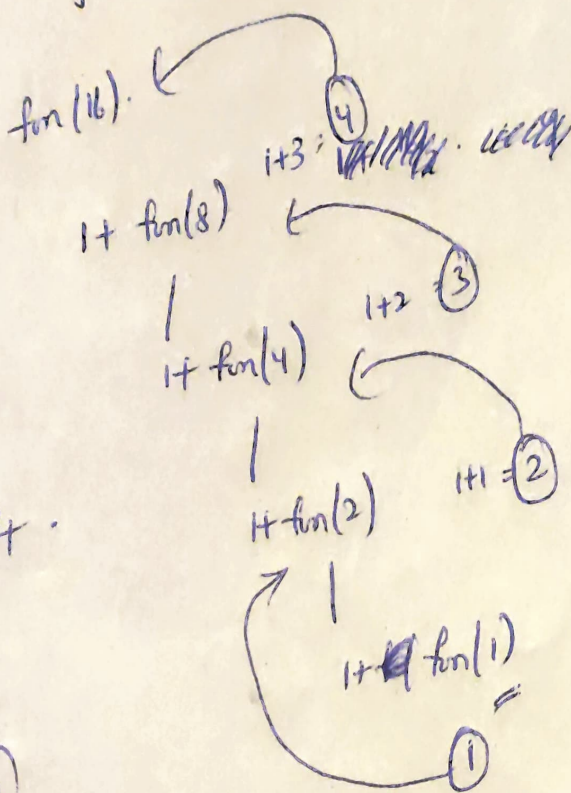 fun(16).
4
1+3 =
1+ fun(8)
1+2 = 3
1+ fun(4)
1+1 = 2
+ .
1+ fun(2)
1+ fun(1)
1